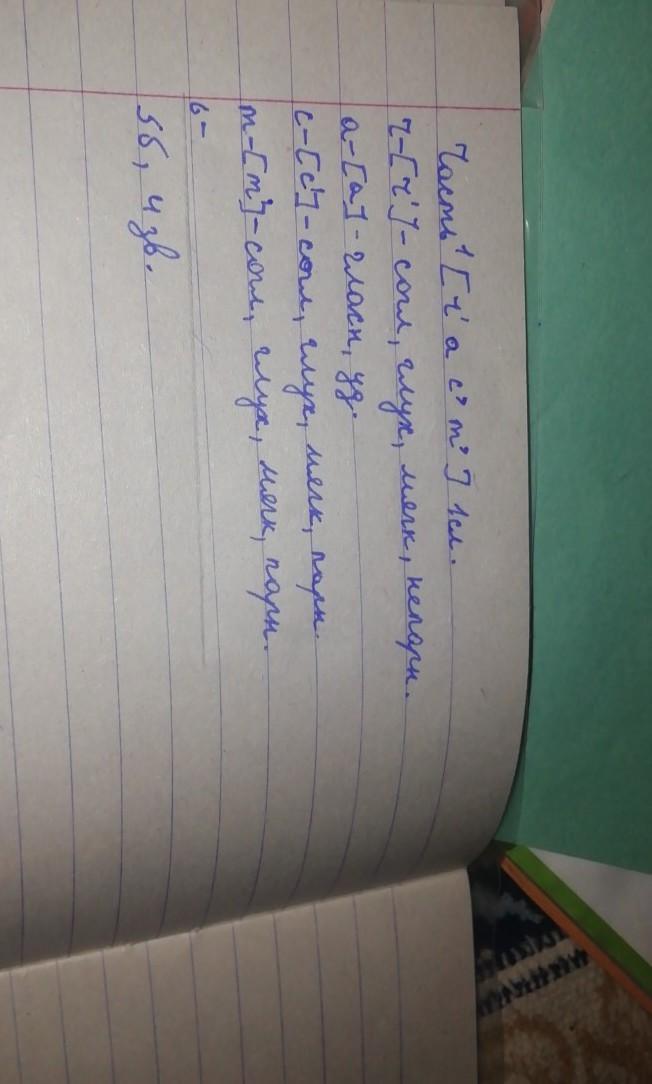 Часть¹ [ч' а с' т'] 1сл.
ч-[ч']-согл, глух, мягк, непарн.
а-[а]-гласн, уд.
с-[с']-согл, глух, мягк, парн.
т-[т']-согл, глух, мягк, парн.
ь-
5б, 4 зв.